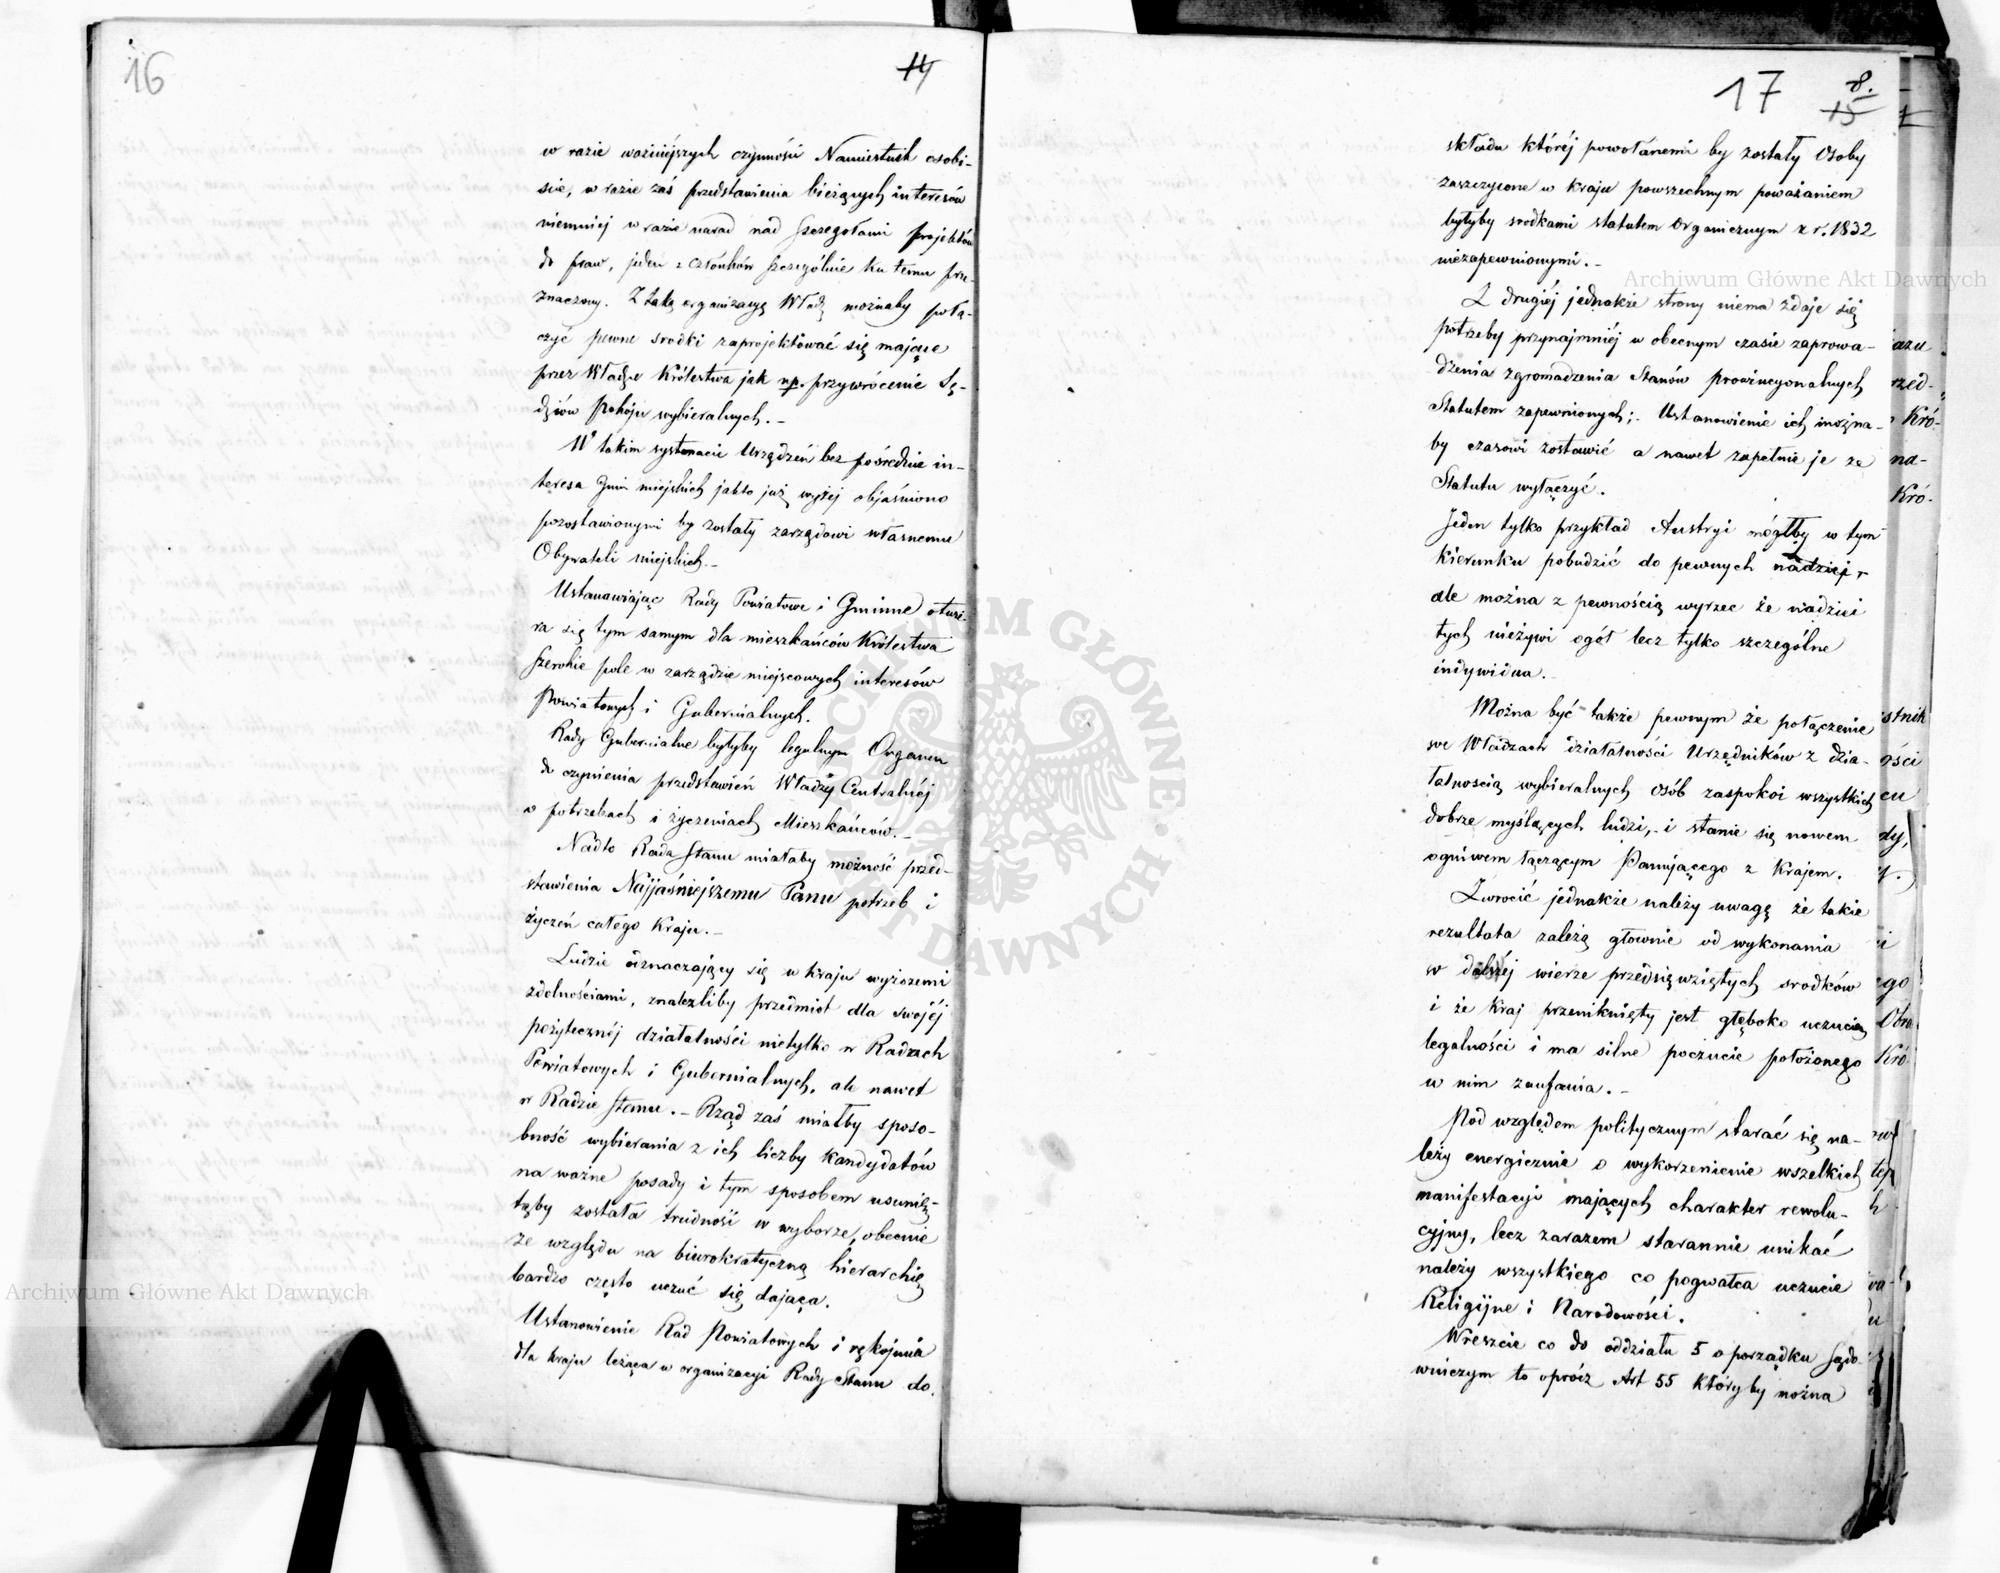 16
14
w razie ważniejszych czynności Namiestnik osobi-
ście, w razie zaś przedstawienia bieżących interesów
niemniej w razie narad nad szczegołami projektów
do praw, jeden z Członków szczególnie ku temu prze-
znaczony. Z taką organizacyą Władz możnaby połą-
czyć pewne srodki zaprojektować się mające
przez Władze Królestwa jak np. przywrócenie Sę-
dziów Pokoju wybieralnych.-
W takim systemacie Urządzeń bezpośrednie in-
teresa Gmin miejskich jakto już wyżej objaśniono
pozostawionymi by zostały zarządowi własnemu
Obywateli miejskich.-
Ustanawiając Rady Powiatowe i Gminne otwie-
ra się tym samym dla mieszkańców Królestwa
szerokie pole w zarządzie miejscowych interesów
Powiatowych i Gubernialnych.
Rady Gubernialne byłyby legalnym Organem
do czynienia przedstawień Władzy Centralnéj
o potrzebach i życzeniach Mieszkańców.-
Nadto Rada Stanu miałaby możność przed-
stawienia Najjaśniejszemu Panu potrzeb i
życzeń całego Kraju.-
Ludzie odznaczający się w Kraju wyższemi
zdolnościami, znaleźliby przedmiot dla swojéj
pożytecznéj działalności nietylko w Radzach
Powiatowych i Gubernialnych, ale nawet
w Radzie Stanu.- Rząd zaś miałby sposo-
bność wybierania z ich liczby Kandydatów
na ważne posady i tym sposobem usunię-
tąby została trudność w wyborze, obecnie
ze względu na biurokratyczną hierarchię
bardzo często uczuć się dająca.
Ustanowienie Rad Powiatowych i rękojmia
dla Kraju leżąca w organizacyi Rady Stanu do
17
8.
15
składu któréj powołanemi by zostały Osoby
zaszczycone w Kraju powszechnym poważaniem
byłyby srodkami statutem Organicznym z r. 1832
niezapewnionymi.-
Z drugiéj jednakże strony niema zdaje się
potrzeby przynajmniéj w obecnym czasie zaprowa-
dzenia zgromadzenia Stanów prowincyonalnych
Statutem zapewnionych;- Ustanowienie ich można-
by czasowi zostawić a nawet zupełnie je ze
Statutu wyłączyć.
Jeden tylko przykład Austryi mógłby w tym
kierunku pobudzić do pewnych nadziej,-
ale można z pewnością wyrzec że nadziei
tych nieżywi ogół lecz tylko szczególne
indywidua.-
Można być także pewnym że połączenie
we Władzach działalności Urzędników z dzia-
łalnością wybieralnych osób zaspokoi wszystkich
dobrze myślących ludzi,- i stanie się nowem
ogniwem łączącym Panującego z Krajem.
Zwrocić jednakże należy uwagę że takie
rezultata zależą głownie od wykonania
w dobréj wierze przedsięwziętych srodków
i że Kraj przeniknięty jest głęboko uczuciem
legalności i ma silne poczucie położonego
w nim zaufania.-
Pod względem politycznym starać się na-
leży energicznie o wykorzenienie wszelkich
manifestacyi mających charakter rewolu-
cyjny, lecz zarazem starannie unikać
należy wszystkiego co pogwałca uczucie
Religijne i Narodowości.
Wreszcie co do oddziału 5 o porządku Sądo-
wniczym to oprócz Art 55 któryby można
Archiwum Główne Akt Dawnych
Archiwum Główne Akt Dawnych
ARCHIWUM GŁÓWNE AKT DAWNYCH